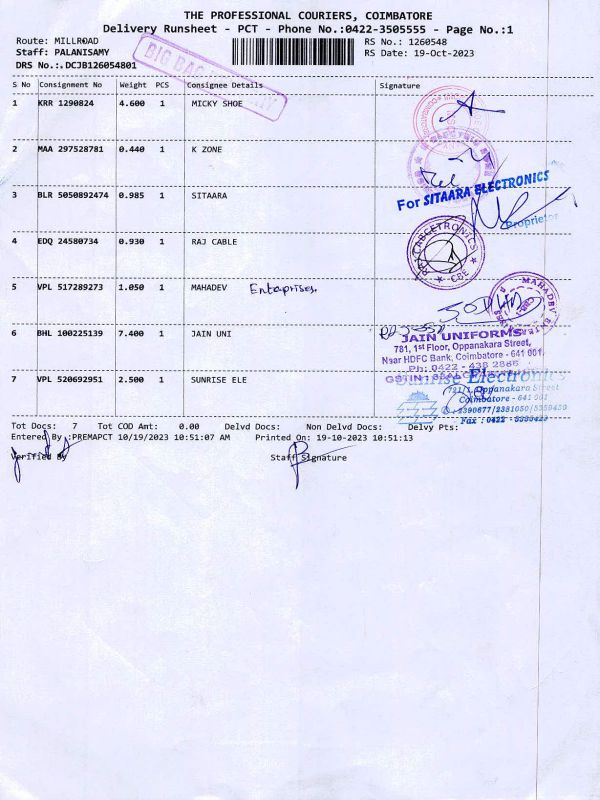 THE PROFESSIONAL COURIERS, COIMBATORE
Delivery Runsheet - PCT - Phone No.:0422-3505555 - Page No.:1
Route: MILLROAD
RS No.: 1260548
Staff: PALANISAMY
RS Date: 19-Oct-2023
DRS No.:.DCJB126054801
BIG BAG
S No Consignment No Weight PCS Consignee Details Signature
1 KRR 1290824 4.600 1 MICKY SHOE
2 MAA 297528781 0.440 1 K ZONE
3 BLR 5050892474 0.985 1 SITAARA
For SITAARA ELECTRONICS
Proprietor
4 EDQ 24580734 0.930 1 RAJ CABLE
CBE
5 VPL 517289273 1.050 1 MAHADEV Enterprises.
MAHADEV
6 BHL 100225139 7.400 1 JAIN UNI
JAIN UNIFORMS
781, 1st Floor, Oppanakara Street,
Near HDFC Bank, Coimbatore - 641 001.
Ph: 0422 - 438 2866
GSTIN:
7 VPL 520692951 2.500 1 SUNRISE ELE
Sunrise Electronics
Oppanakara Street
Coimbatore - 641 001
Fax : 0422 -
Tot Docs: 7 Tot COD Amt: 0.00 Delvd Docs: Non Delvd Docs: Delvy Pts:
Entered By :PREMAPCT 10/19/2023 10:51:07 AM Printed On: 19-10-2023 10:51:13
Verified By Staff Signature